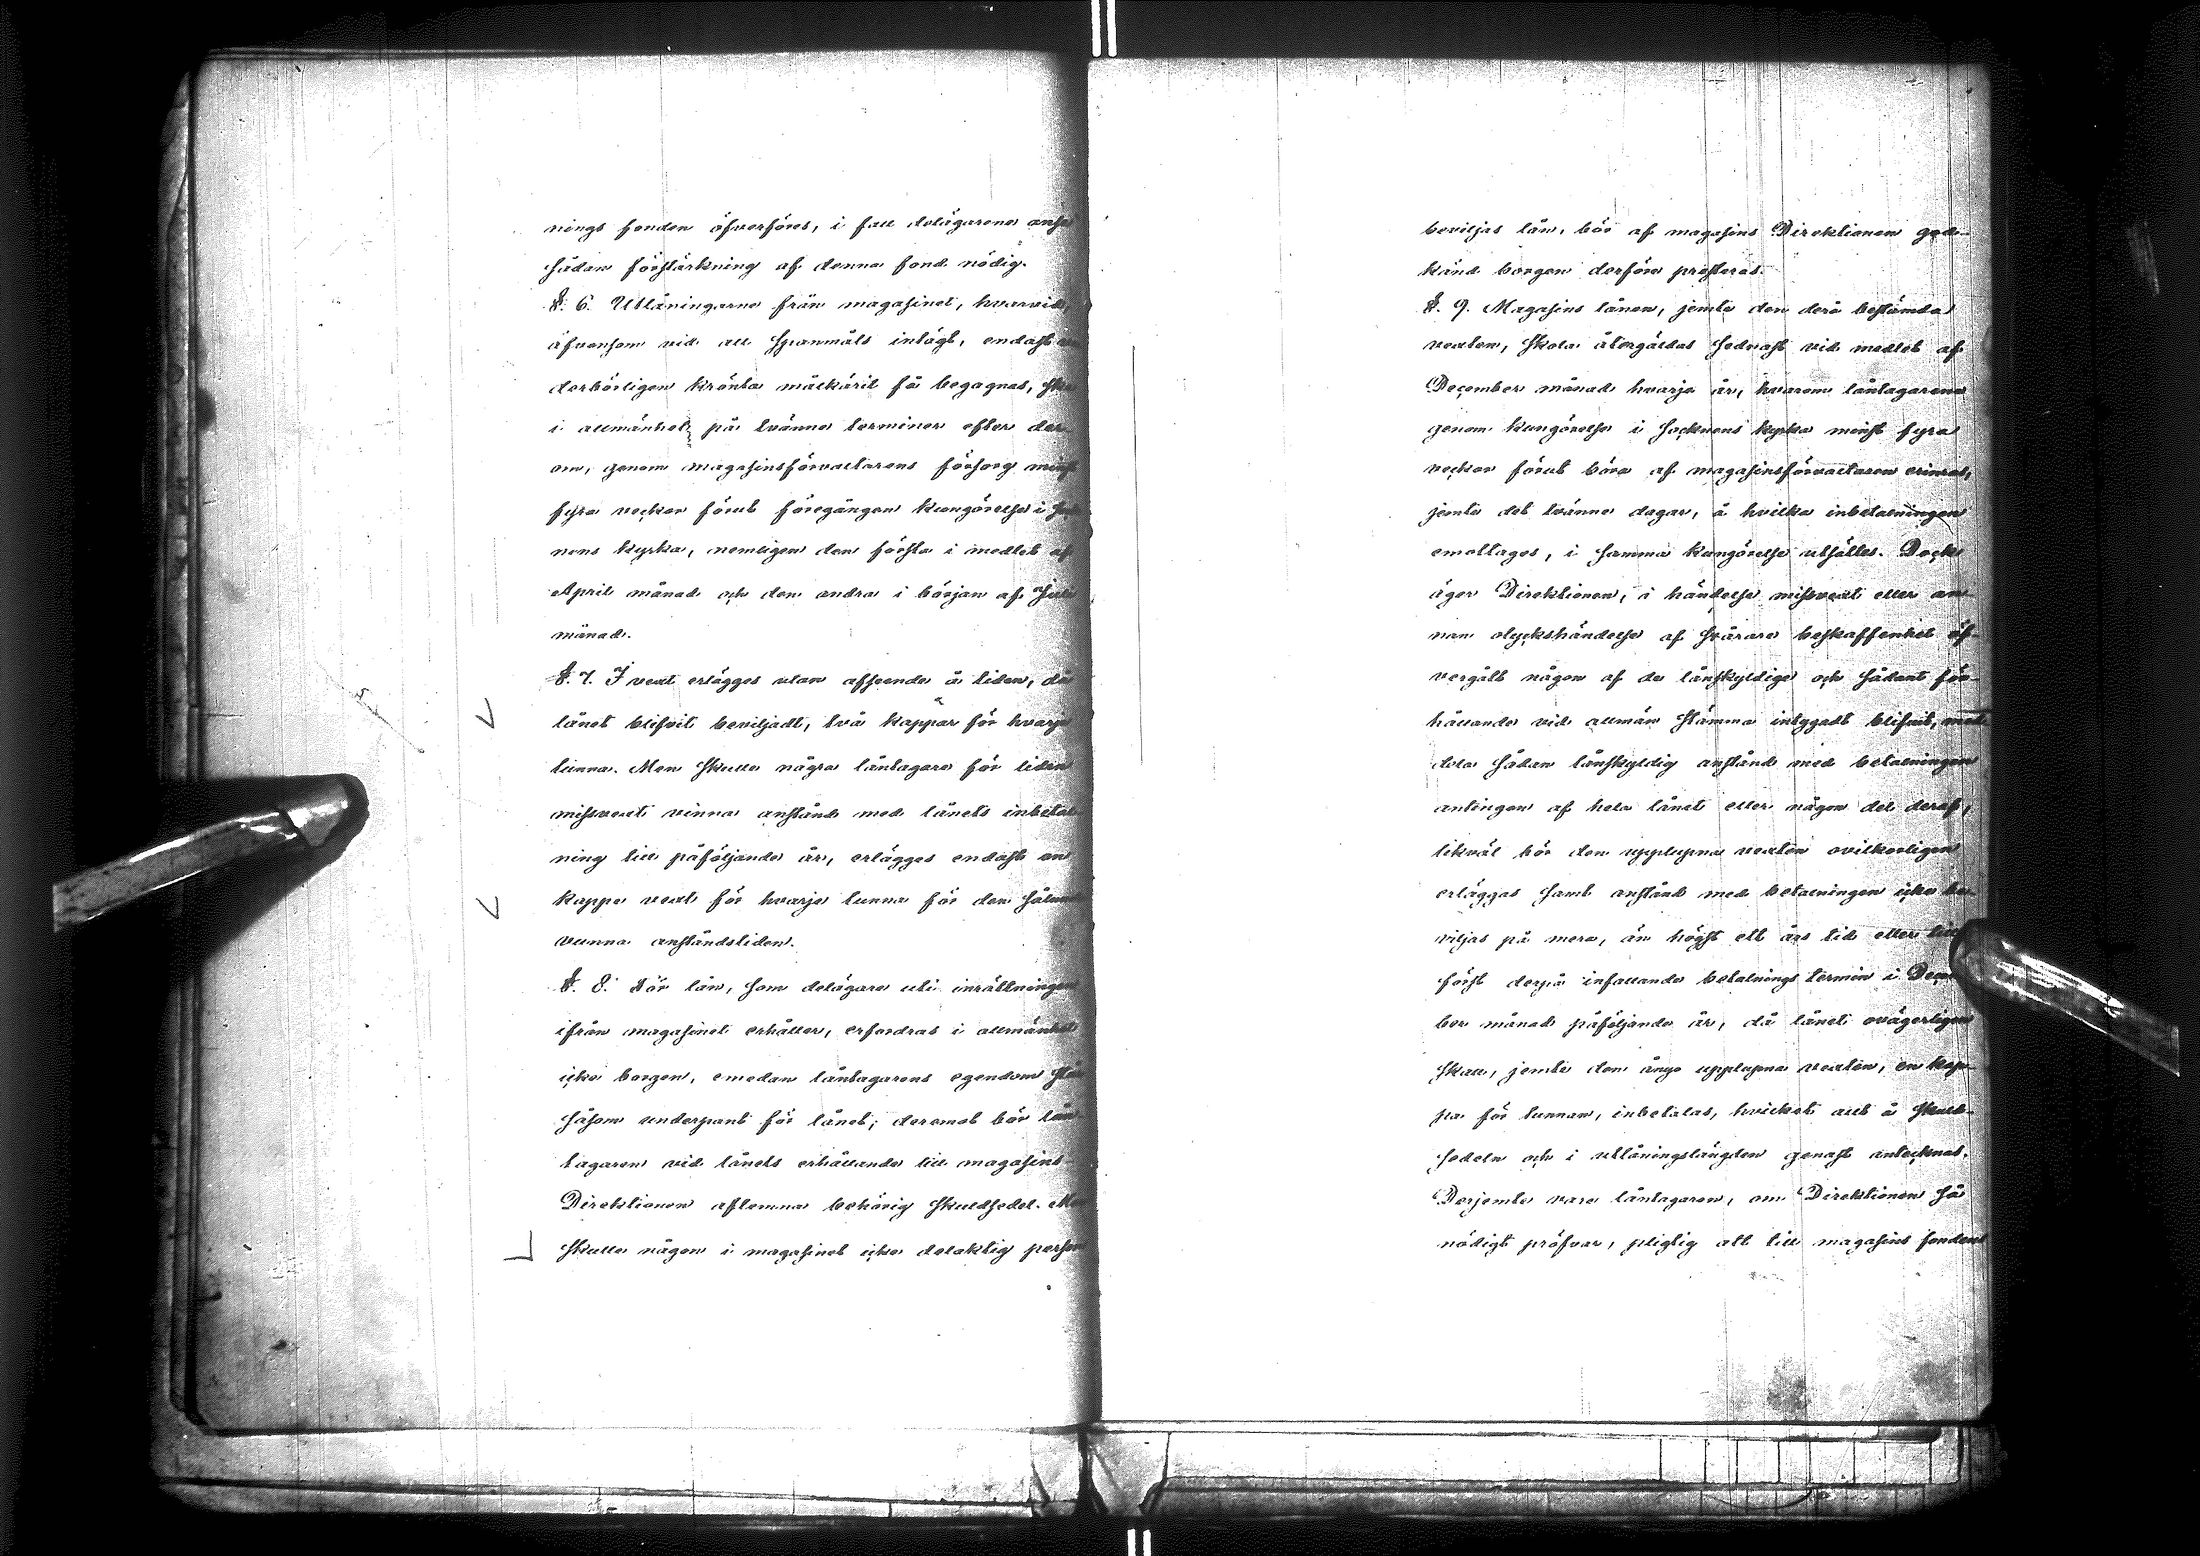 nings fonden öfverföres, i fall delägarena anse
sådan förstärkning af denna fond nödig.
§. 6. Utlåningarne från magasinet, hvarvid,
äfvensom vid all spanmåls intägt, endast
derbörligen krönta målkäril få begagnas, ske
i allmänhet på tvänne terminer efter der
om, genom magasinsförvaltarens försorg minst
fyra veckor förut föregången kungörelse i sock
nens kyrka, nemligen den första i medlet af
April månad och den andra i början af Juni
månad.
§. 7. I vext erlägges utan afseende å tiden, då
lånet blifvit beviljadt, två kappar för hvarje
tunna. Men skulle några låntagare för liden
missvext vinna anstånd med lånets inbetal
ning till påföljande år, erlägges endast en
kappe vext för hvarje tunna för den sålunda
vunna anståndstiden.
§. 8. För lån, som delägare uti inrättningen
ifrån magasinet erhåller, erfordras i allmänhet
icke borgen, emedan låntagarens egendom står
såsom underpant för lånet; deremot bör lån
tagaren vid lånets erhållande till magasins-
Direktionen aflemna behörig skuldsedel. Men
skulle någon i magasinet icke delaktig person
beviljas lån, bör af magasins Direktionen god-
känd borgen derföre presteras.
§. 9. Magasins lånen, jemte den derå bestämda
vexten, skola återgäldas sednast vid medlet af
December månad hvarje år, hvarom låntagarena
genom kungörelse i Socknens kyrka minst fyra
veckor förut böra af magasinsförvaltaren erinras,
jemte det tvänne dagar, å hvilka inbetalningen
emottages, i samma kungörelse utsättes. Dock
äger Direktionen, i händelse missvext eller an-
nan olyckshändelse af svårare beskaffenhet öf-
vergått någon af de lånskyldige och sådant för-
hållande vid allmän stämma intygadt blifvit, med
dela sådan lånskyldig anstånd med betalningen
antingen af hela lånet eller någon del deraf,
likväl bör den upplupna vexten ovilkorligen
erläggas samt anstånd med betalningen icke be-
viljas på mera, än högst ett års tid eller till
först derpå infallande betalnings termin i Decem
ber månad påföljande år, då lånet ovägerligen
skall, jemte den ånyo upplupna vexten, en kap-
pa för tunnan, inbetalas, hvilket allt å skuld-
sedeln och i utlåningslängden genast antecknas.
Derjemte vare låntagaren, om Direktionen så
nödigt pröfvar, pligtig att till magasins fonden